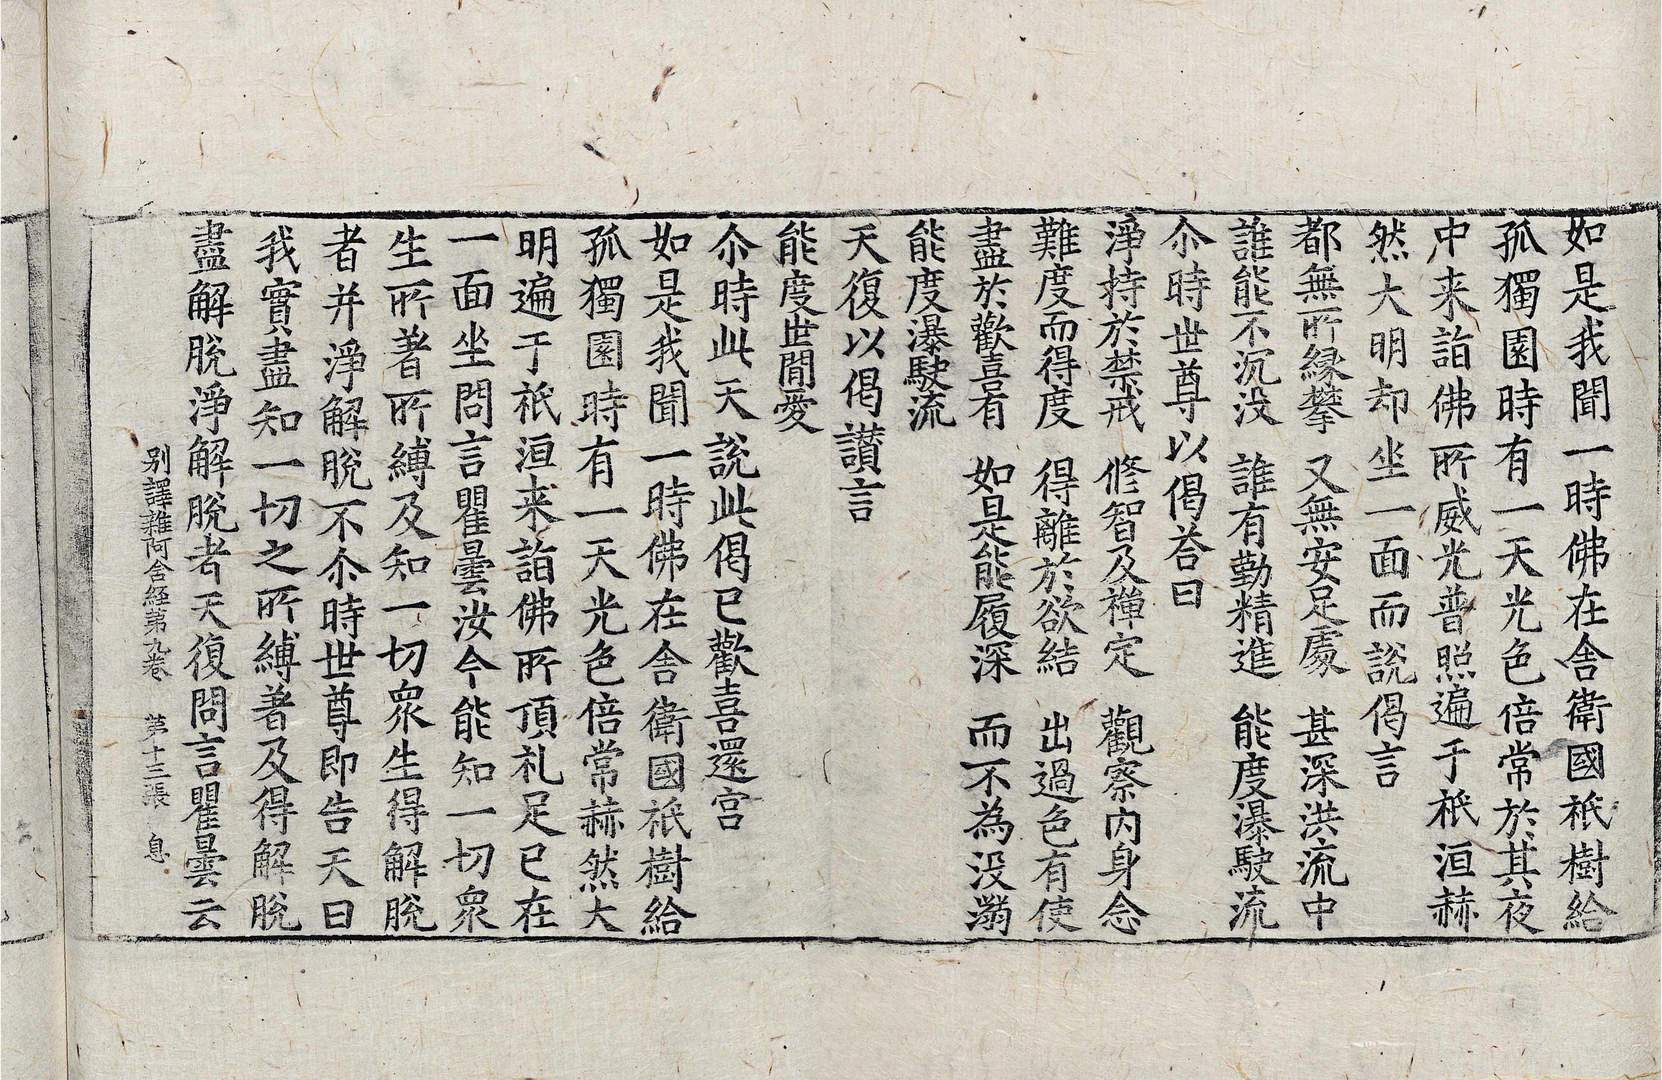 如是我聞一時佛在舎衛國祇樹給
孤獨園時有一天光色倍常於其夜
中来詣佛所威光普照遍于祇洹赫
然大明却坐一面而說偈言
都無所縁攀 又無安足處 甚深洪流中
誰能不沉没 誰有勤精進 能度瀑駛流
尒時世尊以偈荅曰
淨持於禁戒 修智及禪定 觀察内身念
難度而得度 得離於欲結 出過色有使
盡於歡喜有 如是能履深 而不為没溺
能度瀑駛流
天復以偈讃言
能度世間愛
尒時此天說此偈已歡喜還宫
如是我聞一時佛在舎衛國祇樹給
孤獨園時有一天光色倍常赫然大
明遍于祇洹来詣佛所頂礼足已在
一面坐問言瞿曇汝今能知一切衆
生所著所縛及知一切衆生得解脫
者并淨解脫不尒時世尊即告天曰
我實盡知一切之所縛著及得解脫
盡解脫淨解脫者天復問言瞿曇云
别譯雜阿含経苐九卷 苐十三張 息